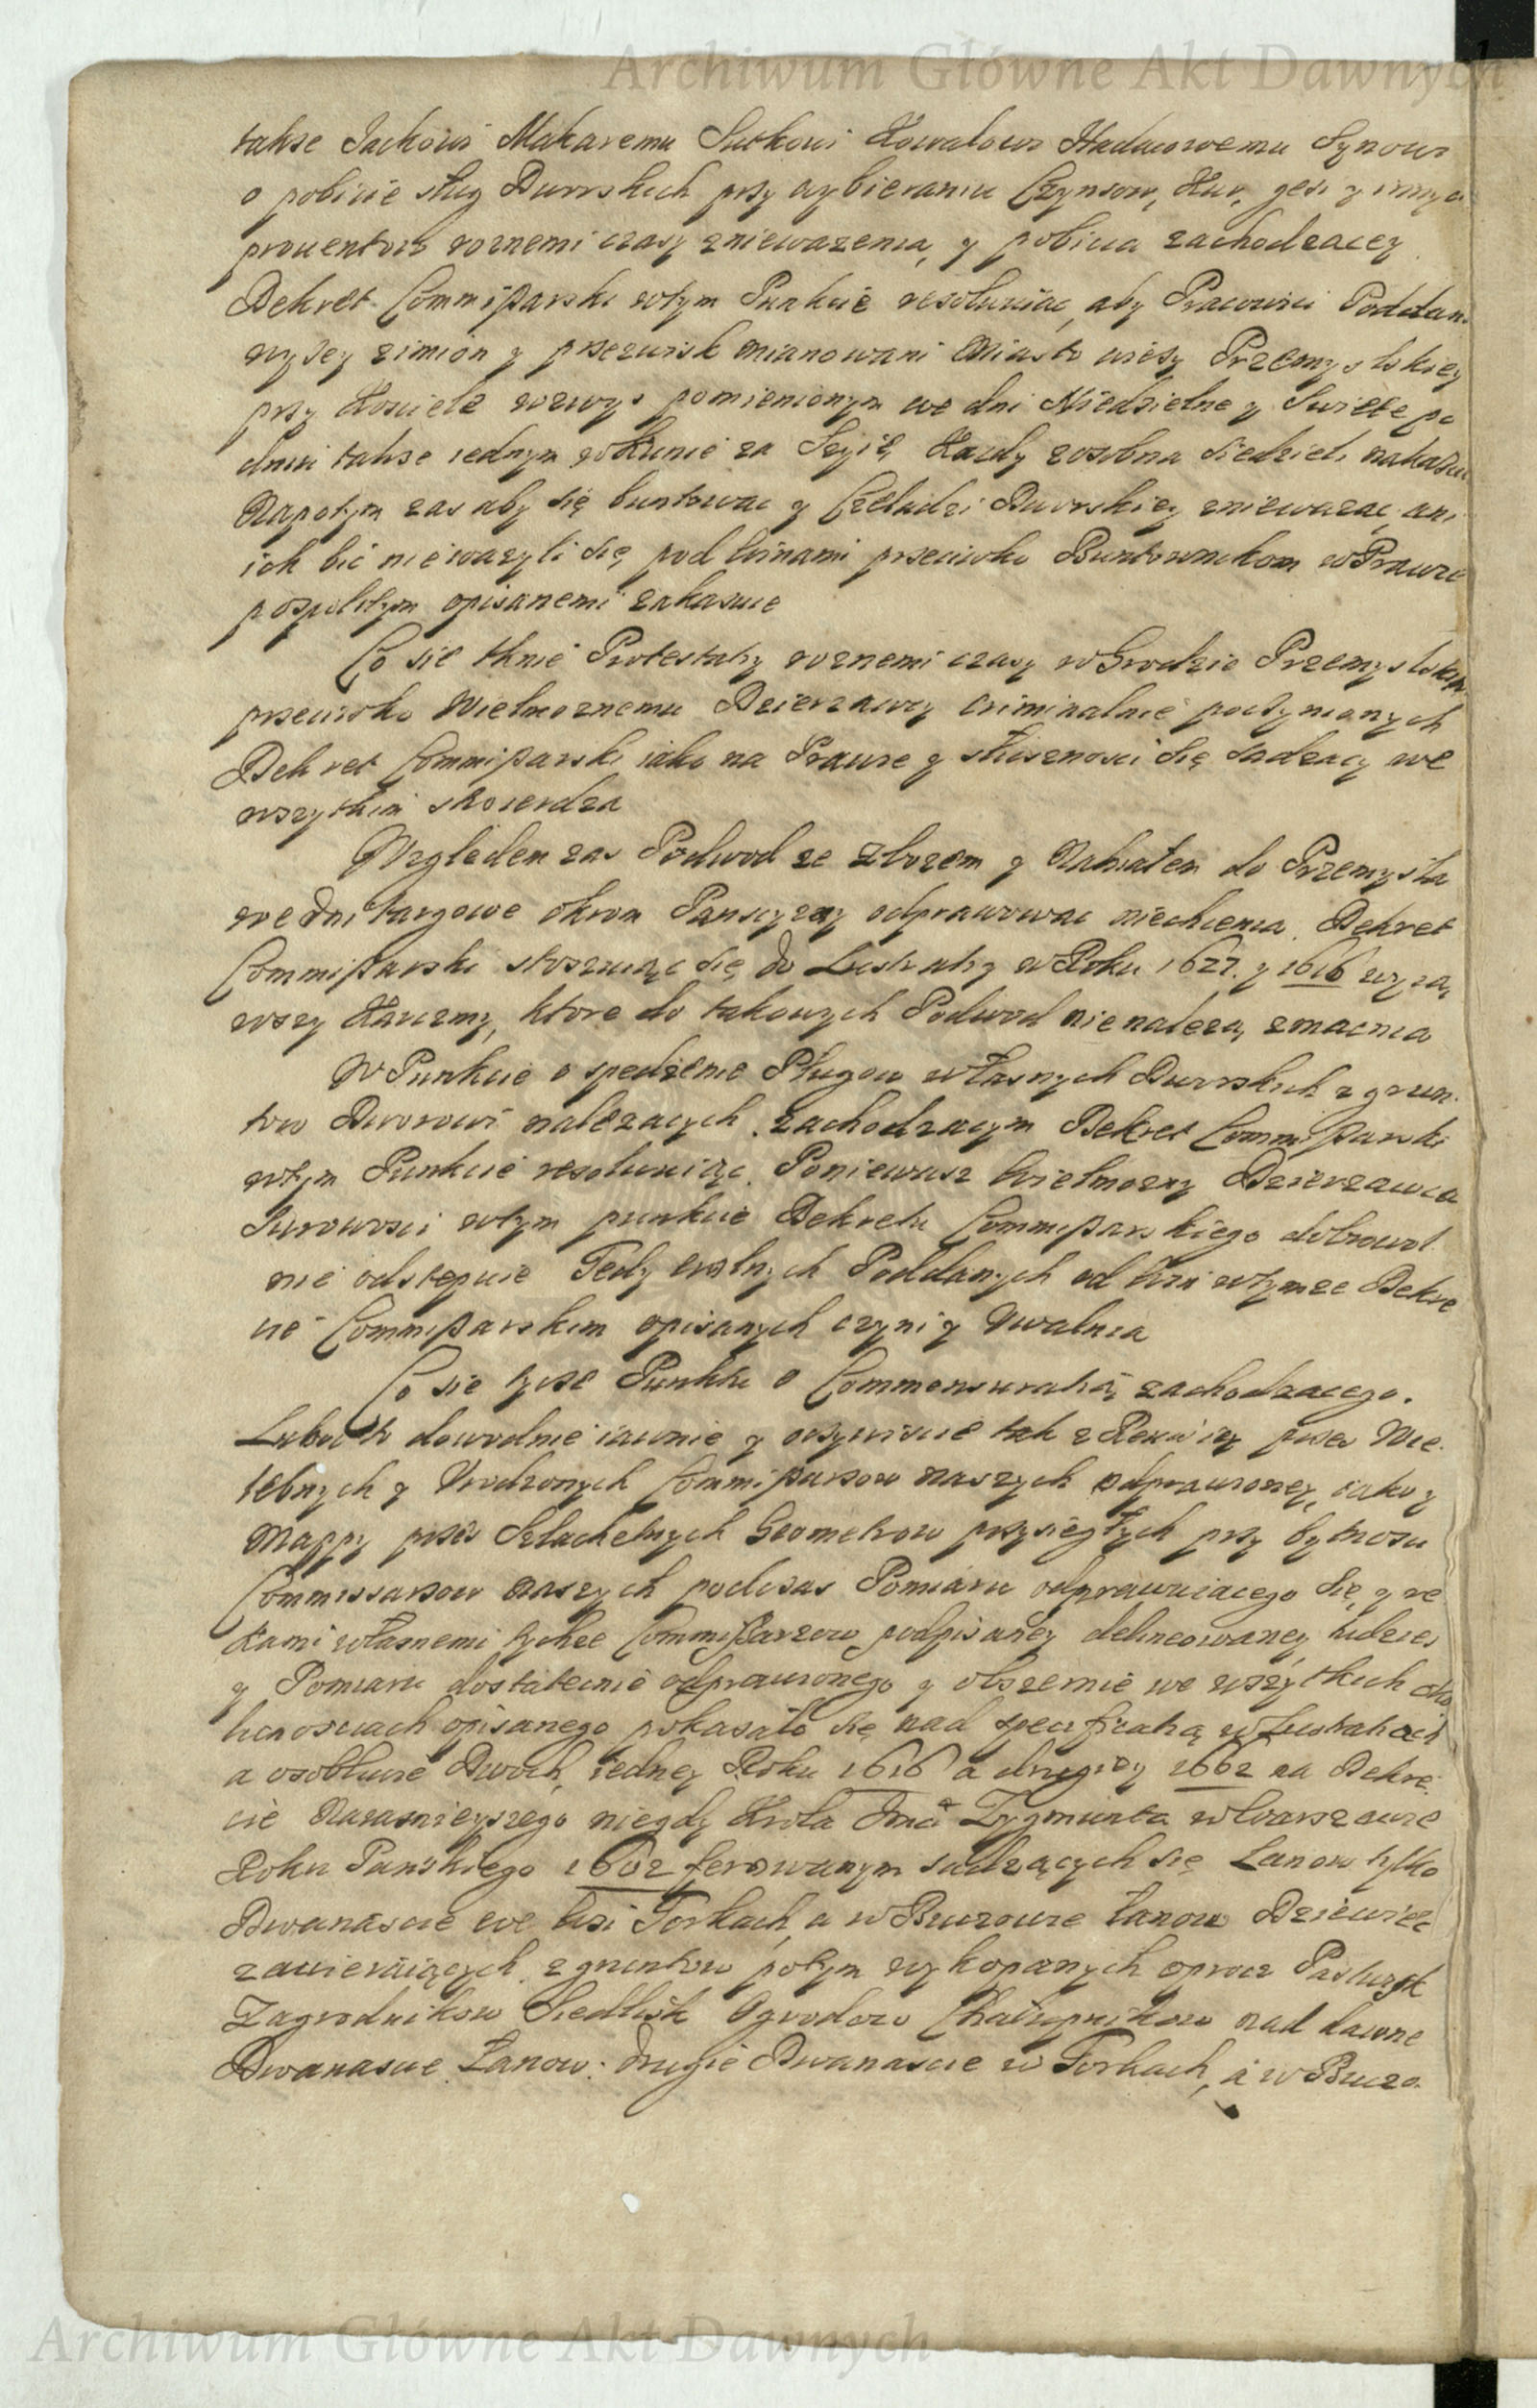 Archiwum Główne Akt Dawnych
takze Jackowi Makaremu Suckowi Kowalowi Synowi
o pobicie sług Dworskich przy wybieraniu Czynszow, Kur, gęsi y innych
prouentow roznemi czasy zniewazenia, y pobicia zachodzacey
Dekret Commißarski wtym Punkcie resoluuiac, aby Pracowici Poddani
wyzey zimion y przezwisk mianowani Miasto wiezy Przemyslskiey
przy Kosciele wzwysz pomienionym we dni Niedzielne y Swięte po
dniu takze iednym wKunie za Szyię Kazdy zosobna siedzieli nakazuie
Napotym zas aby się buntowac y Czeladzi Dworskiey zniewazac, ani
ich bic niewazyli się pod winami przeciwko Buntownikom wPrawie
pospolitym opisanemi zakazuie
Co sie tknie Protestacyi roznemi czasy wGrodzie Przemyslskim
przeciwko Wielmoznemu Dzierzawcy criminalnie poczynionych
Dekret Commißarski iako na Prawie y słusznosci się sadzacy we
wszytkim stwierdza
Względem zas Podwod ze Zbozem y Nabiałem do Przemysla
we dni targowe okrom Panszczyzny odprawowac niechcenia. Dekret
Commißarski stosuiąc się do Lustratiy wRoku 1627. y 1616 wyią
wszy Karczmy, ktore do takowych Podwod nienalezą, zmacnia
W Punkcie o spędzenie Pługow własnych Dworskich z grun
tow Dworowi nalezacych zachodzacym Dekret Commißarski
wtym Punkcie resoluuiąc. Poniewasz Wielmozny Dzierzawca
Surowosci wtym punkcie Dekretu Commißarskiego dobrowol
nie odstępuie Tedy wolnych Poddanych od Win wtymze Dekre
cie Commißarskim opisanych czyni y Uwalnia
Co sie tycze Punktu o Commensuratią zachodzacego.
Lubo to dowodnie iawnie y oczywiscie tak z Rewiziy przez Wie
lebnych y Urodzonych Commißarzow naszych odprawioney, iako y
Mappy przez Szlachetnych Geometrow przysięgłych przy bytnosci
Commissarzow naszych podczas Pomiaru odprawuiacego się, y rę
kami własnemi tychze Commißarzow podpisaney delineowaney tudziesz
y Pomiaru dostatecznie odprawionego y obszernie we wszytkich oko
licznosciach opisanego pokazało się nad specificatią wLustratiach
a osobliwie Dwoch, iedney Roku 1616 a drugiey 1662 na Dekre
cie Naiasnieyszego niegdy Krola Jmci Zygmunta wWarszawie
Roku Panskiego 1602 ferowanym sadzących się Lanow tylko
Dwanascie we Wsi Torkach, a wBuczowie Lanow Dziewiec
zawieraiących, z gruntow potym wykopanych oprocz Pastwisk
Zagrodnikow Siedlisk Ogrodow Chałupnikow nad dawne
Dwanascie Lanow: drugie Dwanascie w Torkach, a w Buczo
Archiwum Główne Akt Dawnych